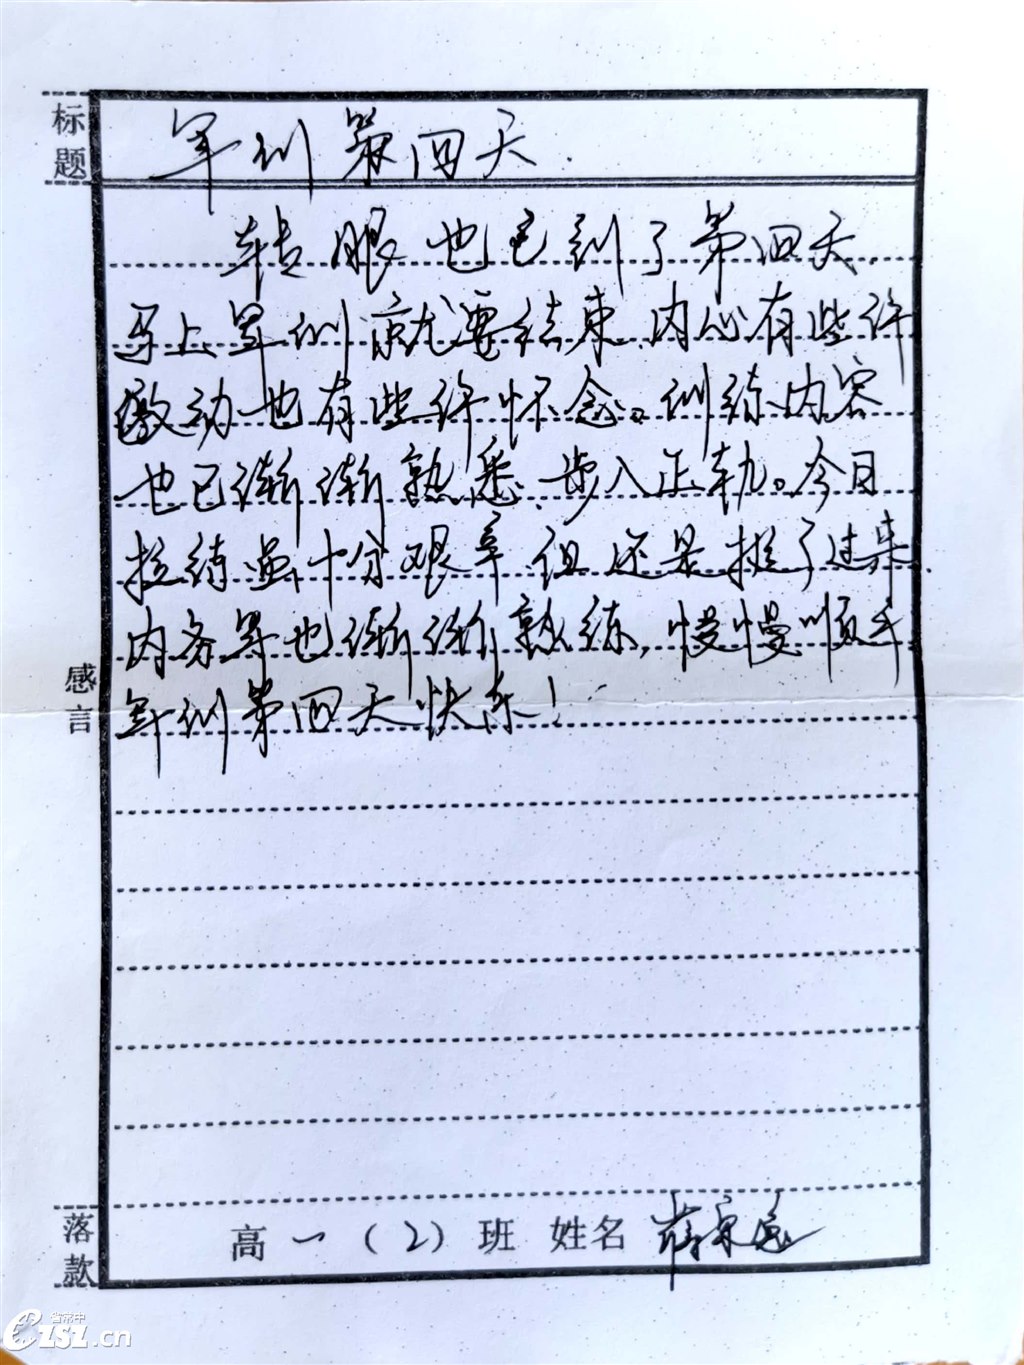 标题
军训第四天.
转眼也已到了第四天,
马上军训就要结束,内心有些许
激动也有些许怀念。训练内容
也已渐渐熟悉,步入正轨。今日
拉练虽十分艰辛,但还是挺了过来,
内务等也渐渐熟练,慢慢顺手
军训第四天快乐!
感言
落款
高一(2)班 姓名
省常中
CZSZ.cn